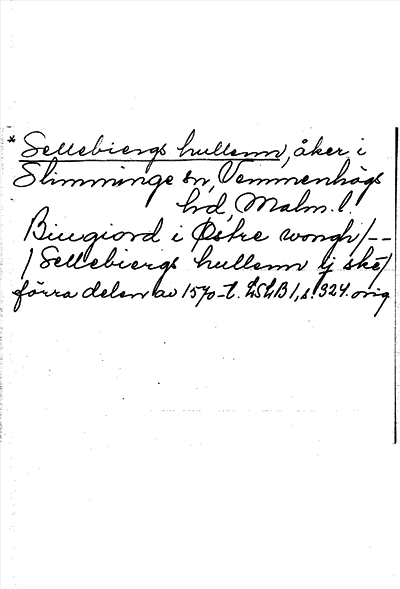 * Sellebiergs hullenn, åker i
Slimminge sn, Vemmenhögs
hd, Malm. l.
Biugiord i Østre wongh/--
/Sellebiergs hullenn ij ske/
förra delen av 1570-t. LSLB 1, s. 324. orig